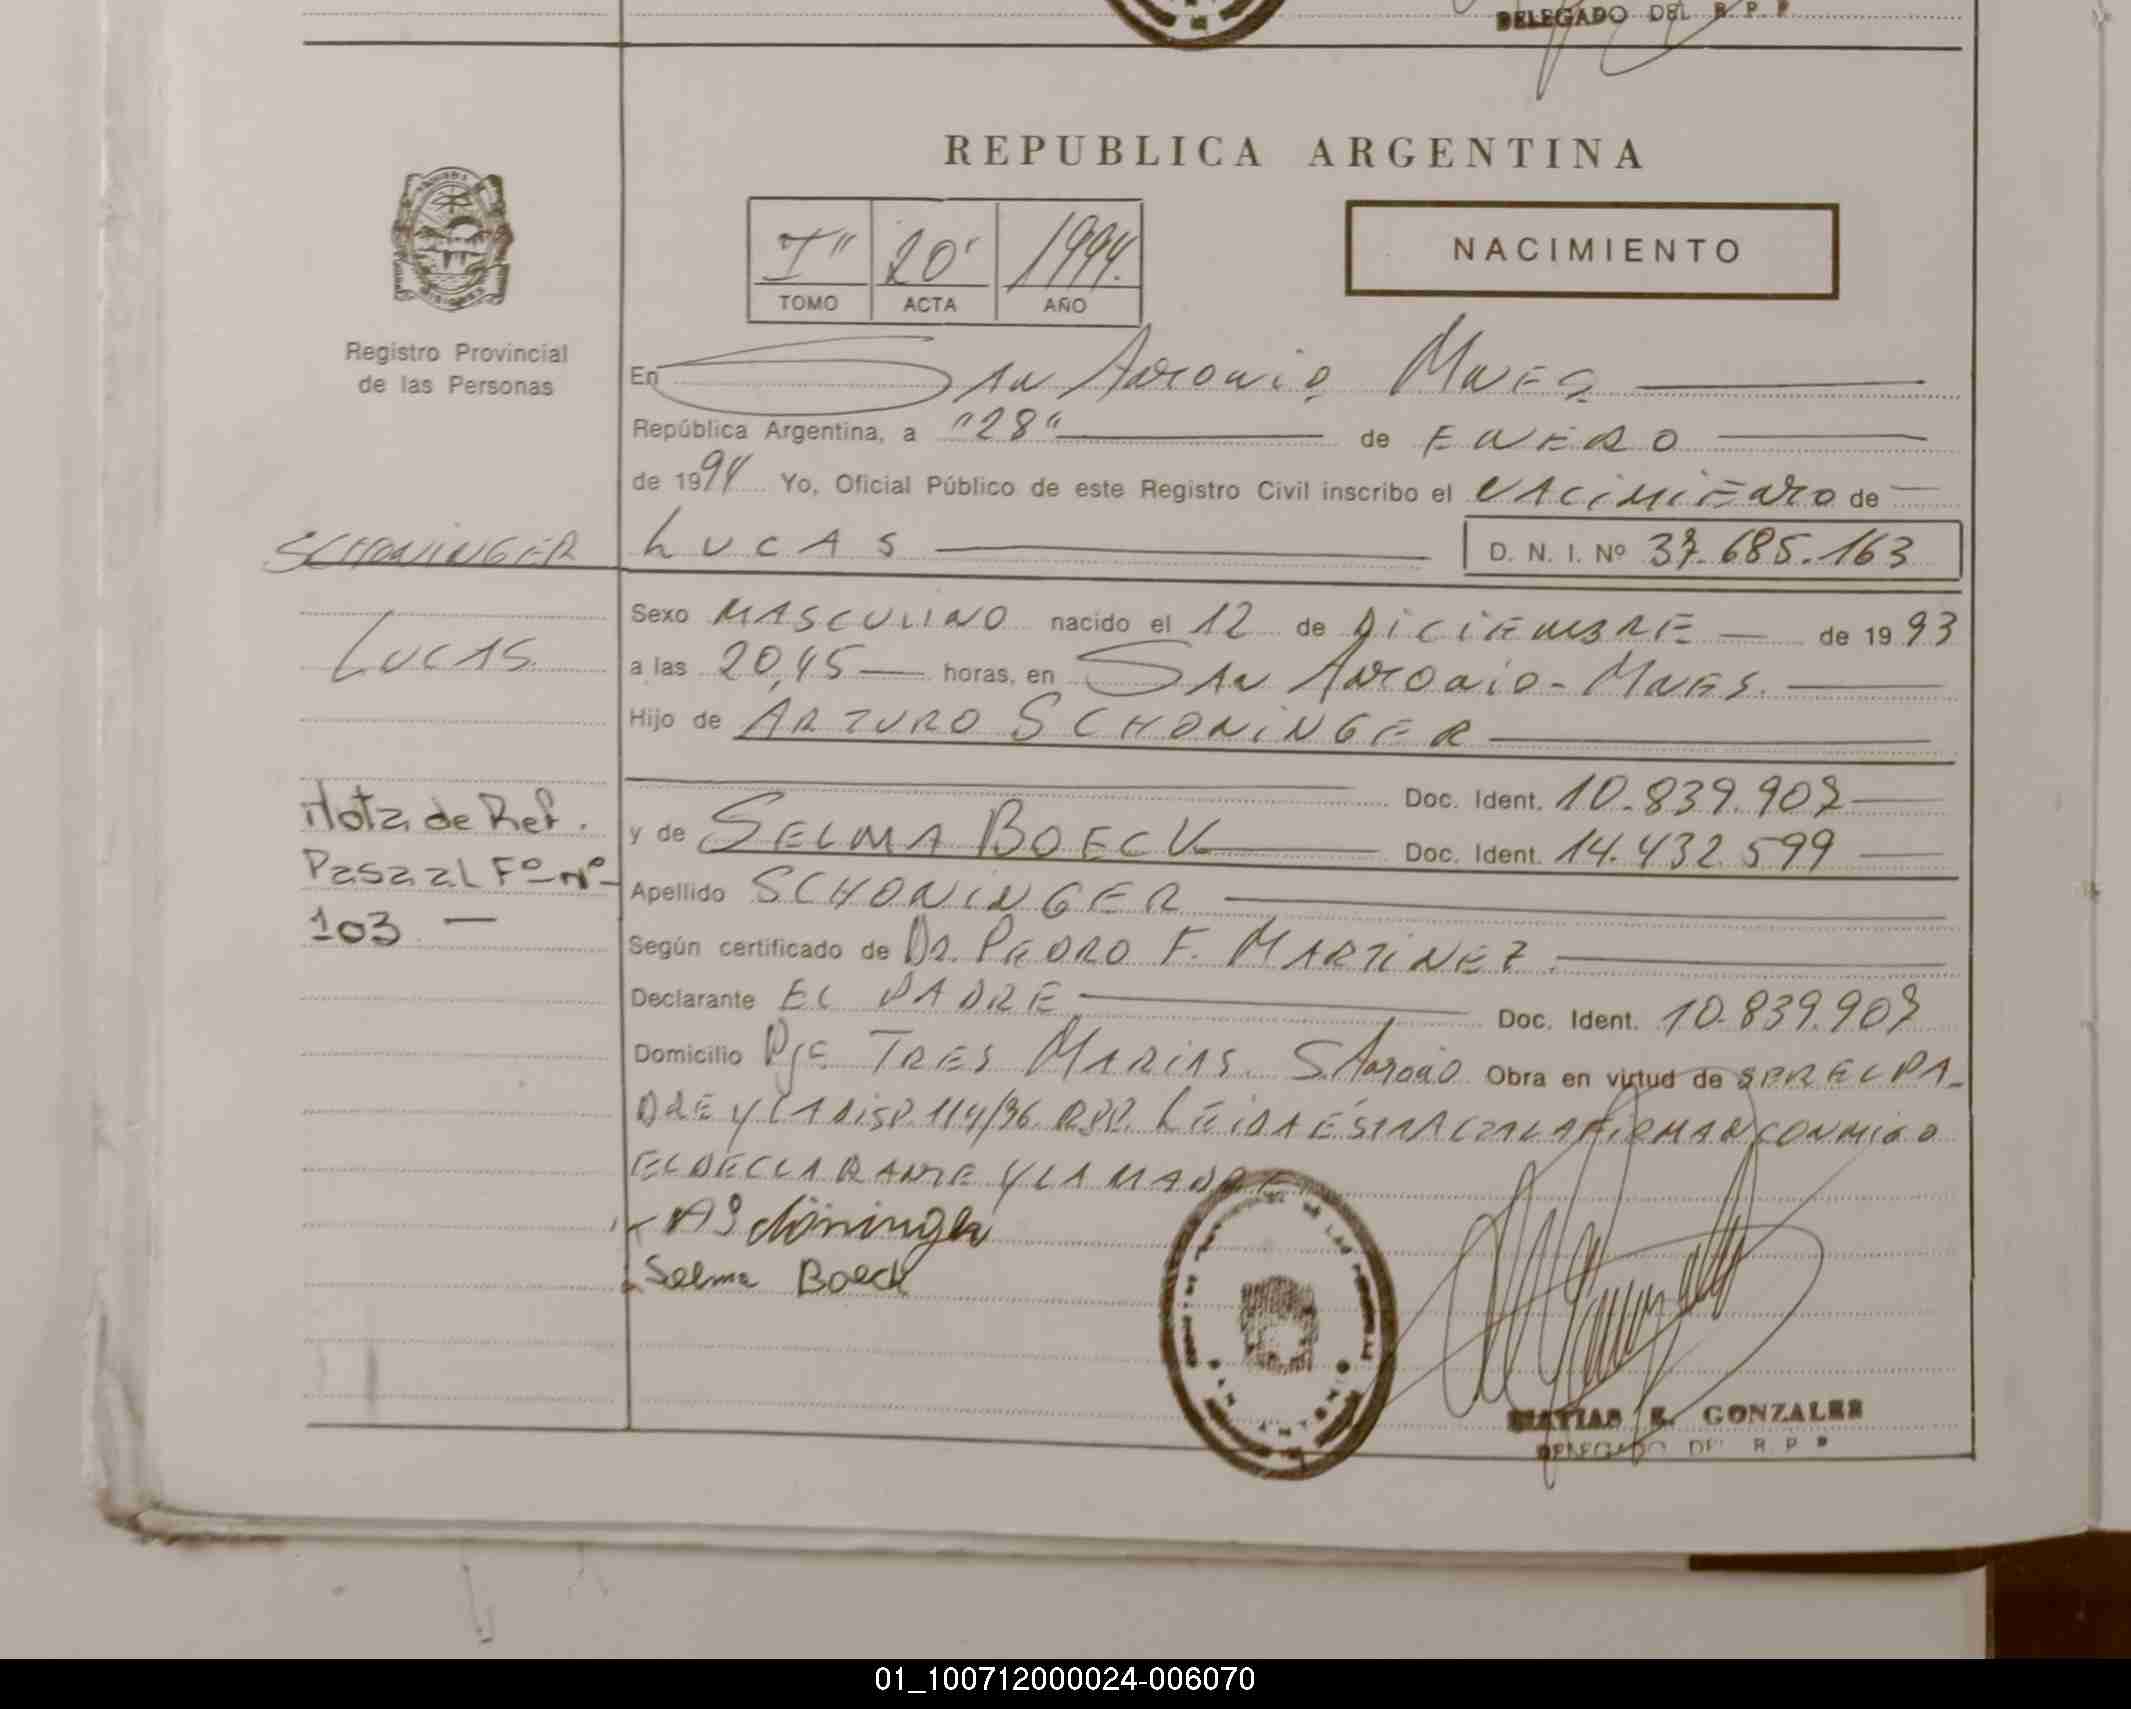 DELEGADO DEL R P P
REPUBLICA ARGENTINA
Registro Provincial
de las Personas
I" 20' 1994.
TOMO ACTA AÑO
NACIMIENTO
En San Antonio Mnes
República Argentina, a "28" de ENERO
de 1994 Yo, Oficial Público de este Registro Civil inscribo el NACIMIENTO de
SCHONINGER
LUCAS
D. N. I. Nº 37.685.163
LUCAS.
Sexo MASCULINO nacido el 12 de DICIEMBRE de 1993
a las 20,45 horas, en SAN ANTONIO - MNES.
Hijo de ARTURO SCHONINGER
Doc. Ident. 10.839.907
y de SELMA BOECK Doc. Ident. 14.432.599
Nota de Ref.
Pasa al Fº Nº
103
Apellido SCHONINGER
Según certificado de DR. PEDRO F. MARTINEZ
Declarante EL PADRE Doc. Ident. 10.839.907
Domicilio Pje TRES MARIAS. S. Antonio Obra en virtud de SER EL PA-
DRE Y LA DISP. 114/96 RPP. LEIDA ESTA ACTA LA FIRMAN CONMIGO
EL DECLARANTE Y LA MADRE
Schöninger
Selma Boeck
SAN ANTONIO
MATIAS E. GONZALES
DELEGADO DEL R P P
01_100712000024-006070